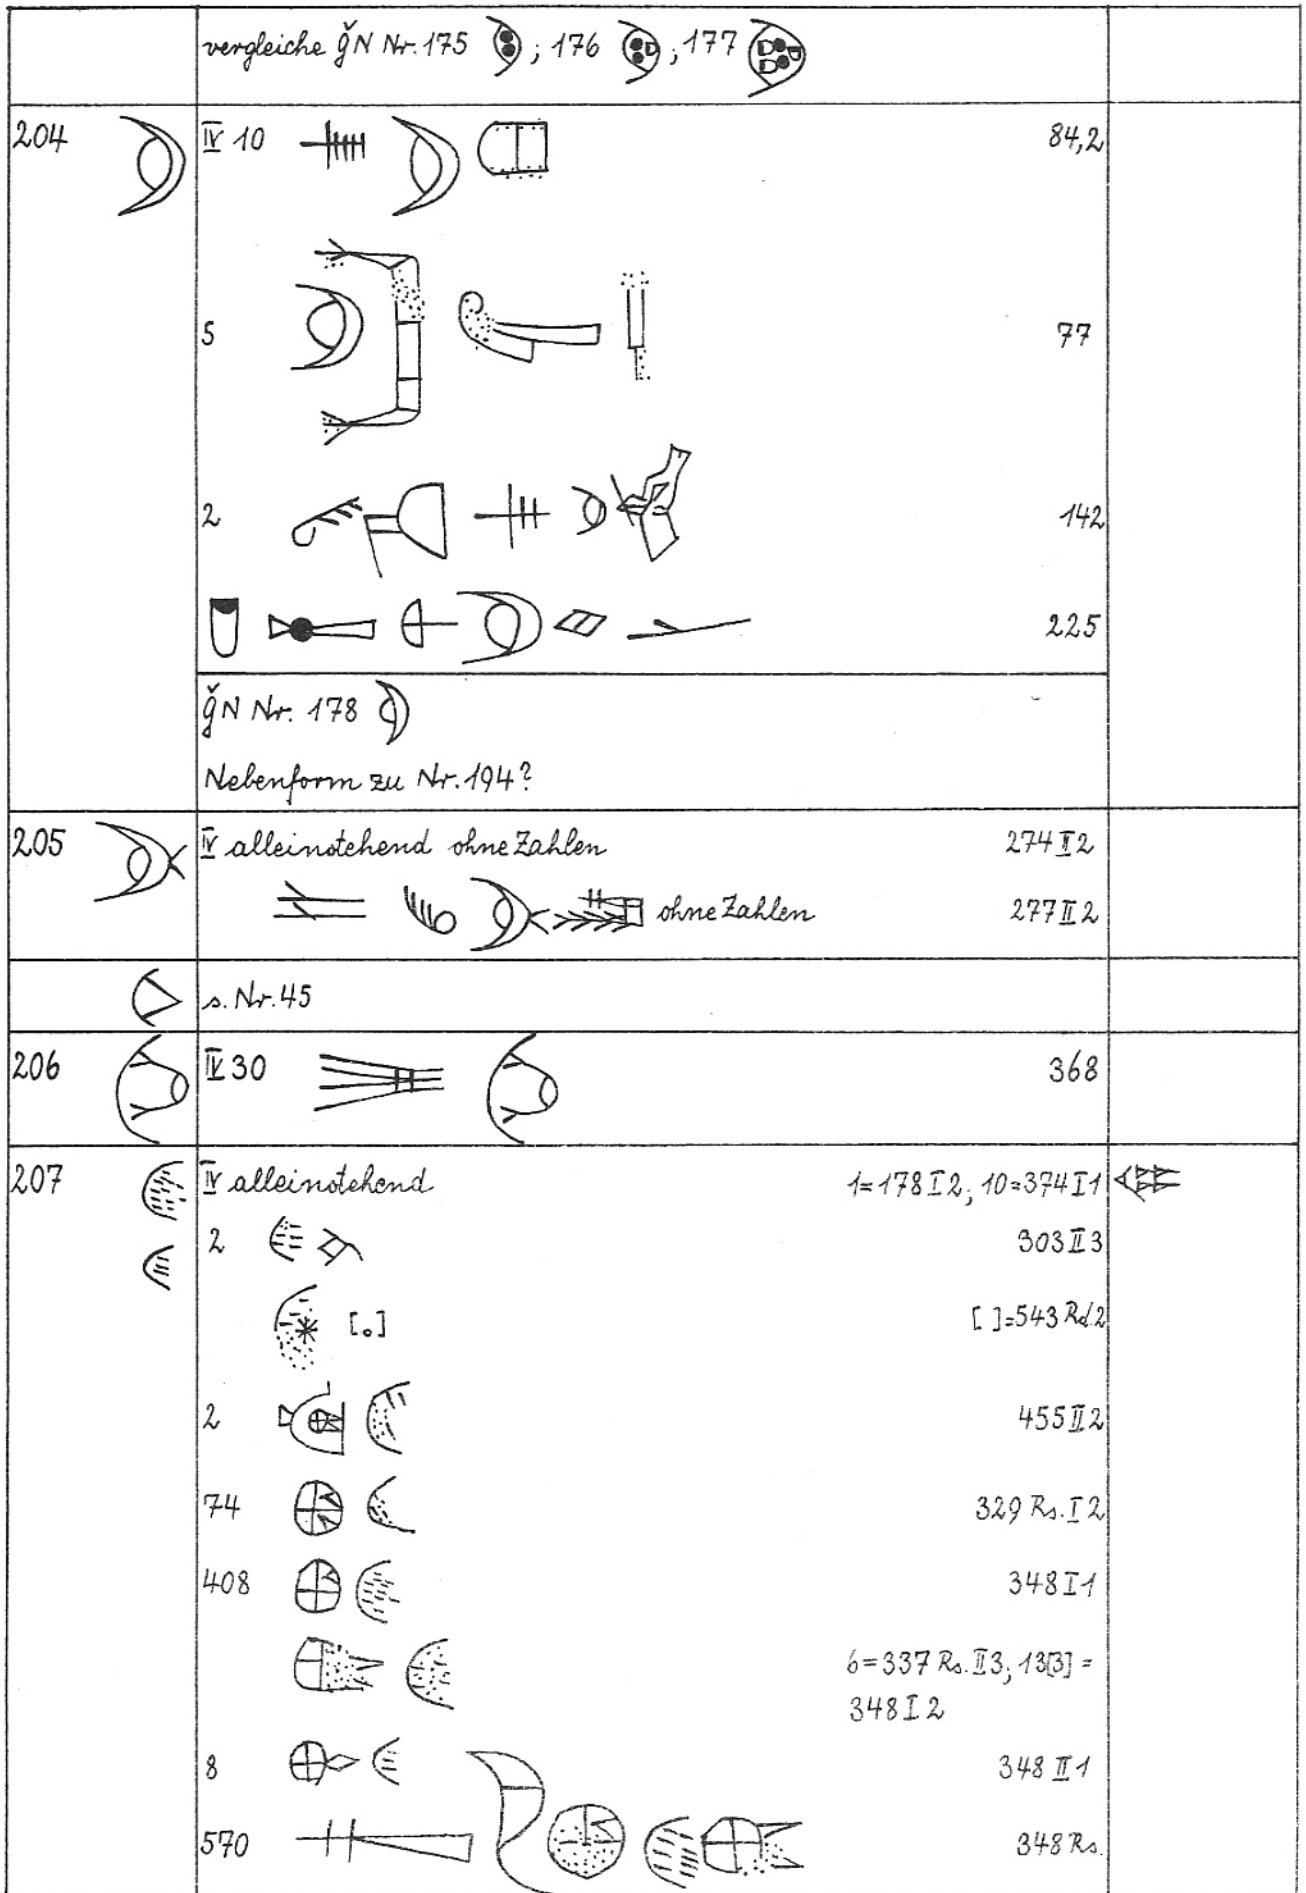 vergleiche ǧN Nr. 175 ; 176 ; 177
204 IV 10 84,2
5 77
2 142
225
ǧN Nr. 178
Nebenform zu Nr. 194?
205 IV alleinstehend ohne Zahlen 274 II 2
ohne Zahlen 277 II 2
s. Nr. 45
206 IV 30 368
207 IV alleinstehend 1=178 I 2; 10=374 I 1
2 303 II 3
[.] [ ]=543 Rd. 2
2 455 II 2
74 329 Rs. I 2
408 348 I 1
6=337 Rs. II 3; 13[3] =
348 I 2
8 348 II 1
570 348 Rs.